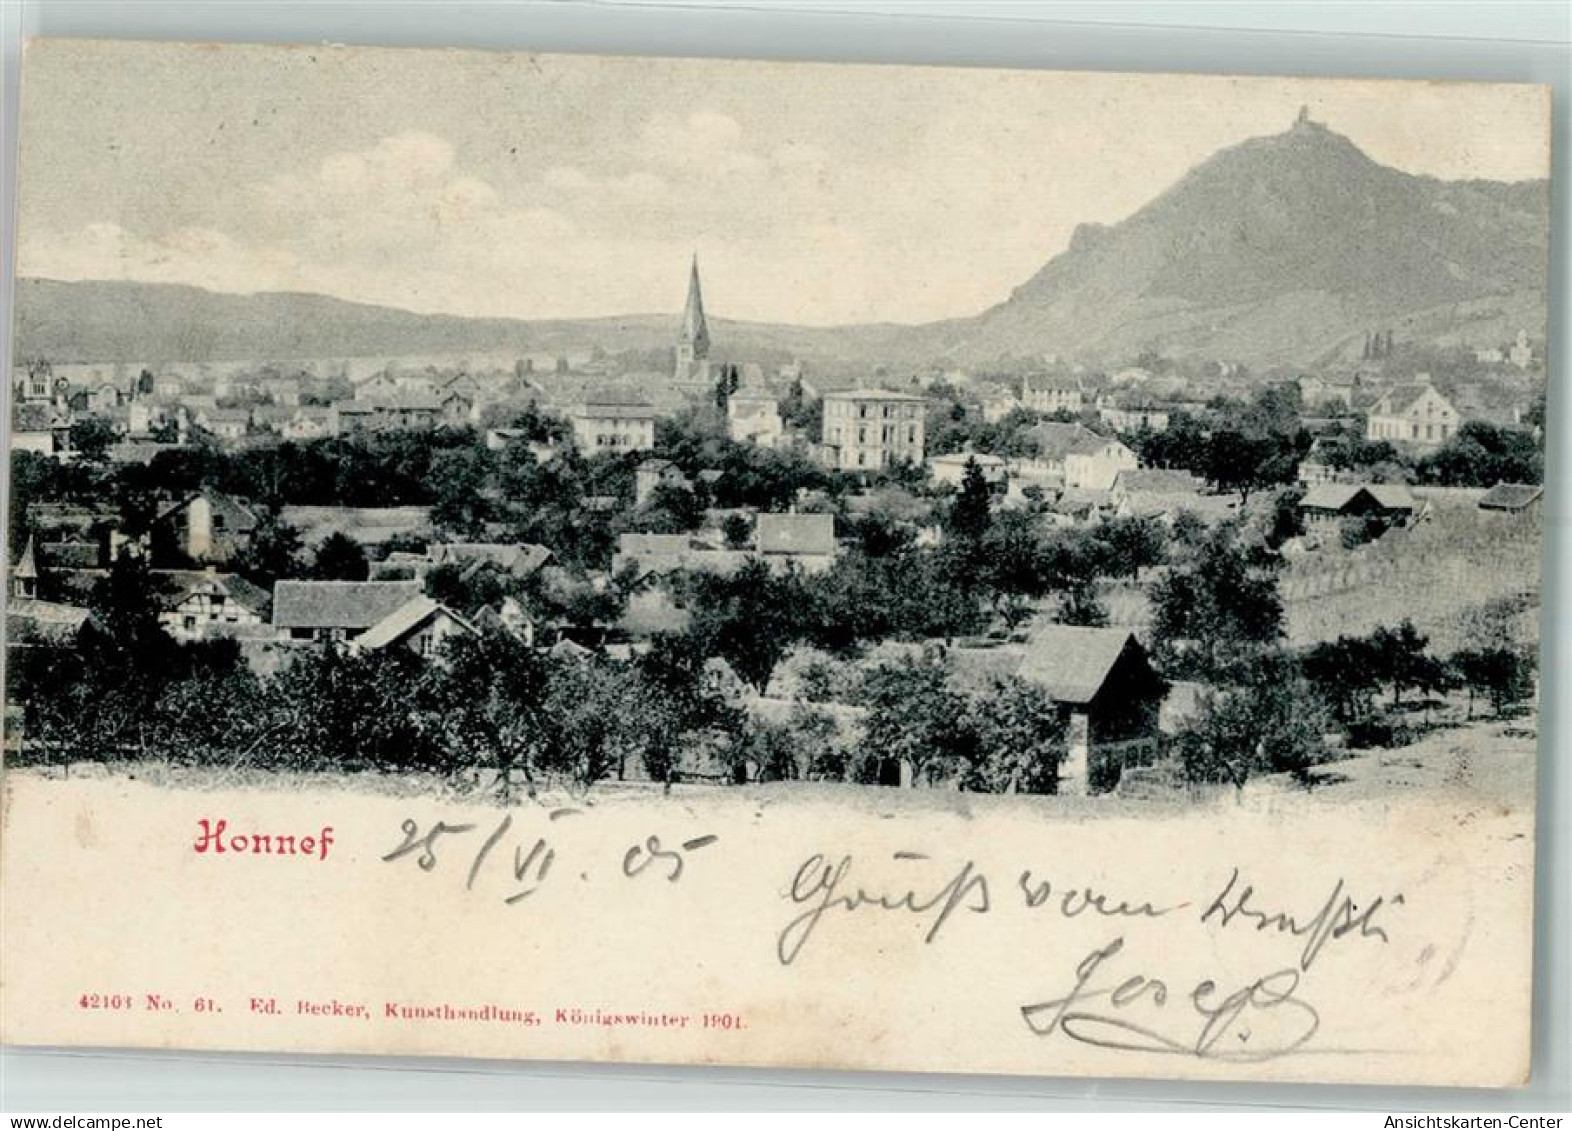 Honnef 25/VI. 05 Gruß vom
Josef
42103 No. 61. Ed. Becker, Kunsthandlung, Königswinter 1901.
oldthing.de
Ansichtskarten-Center